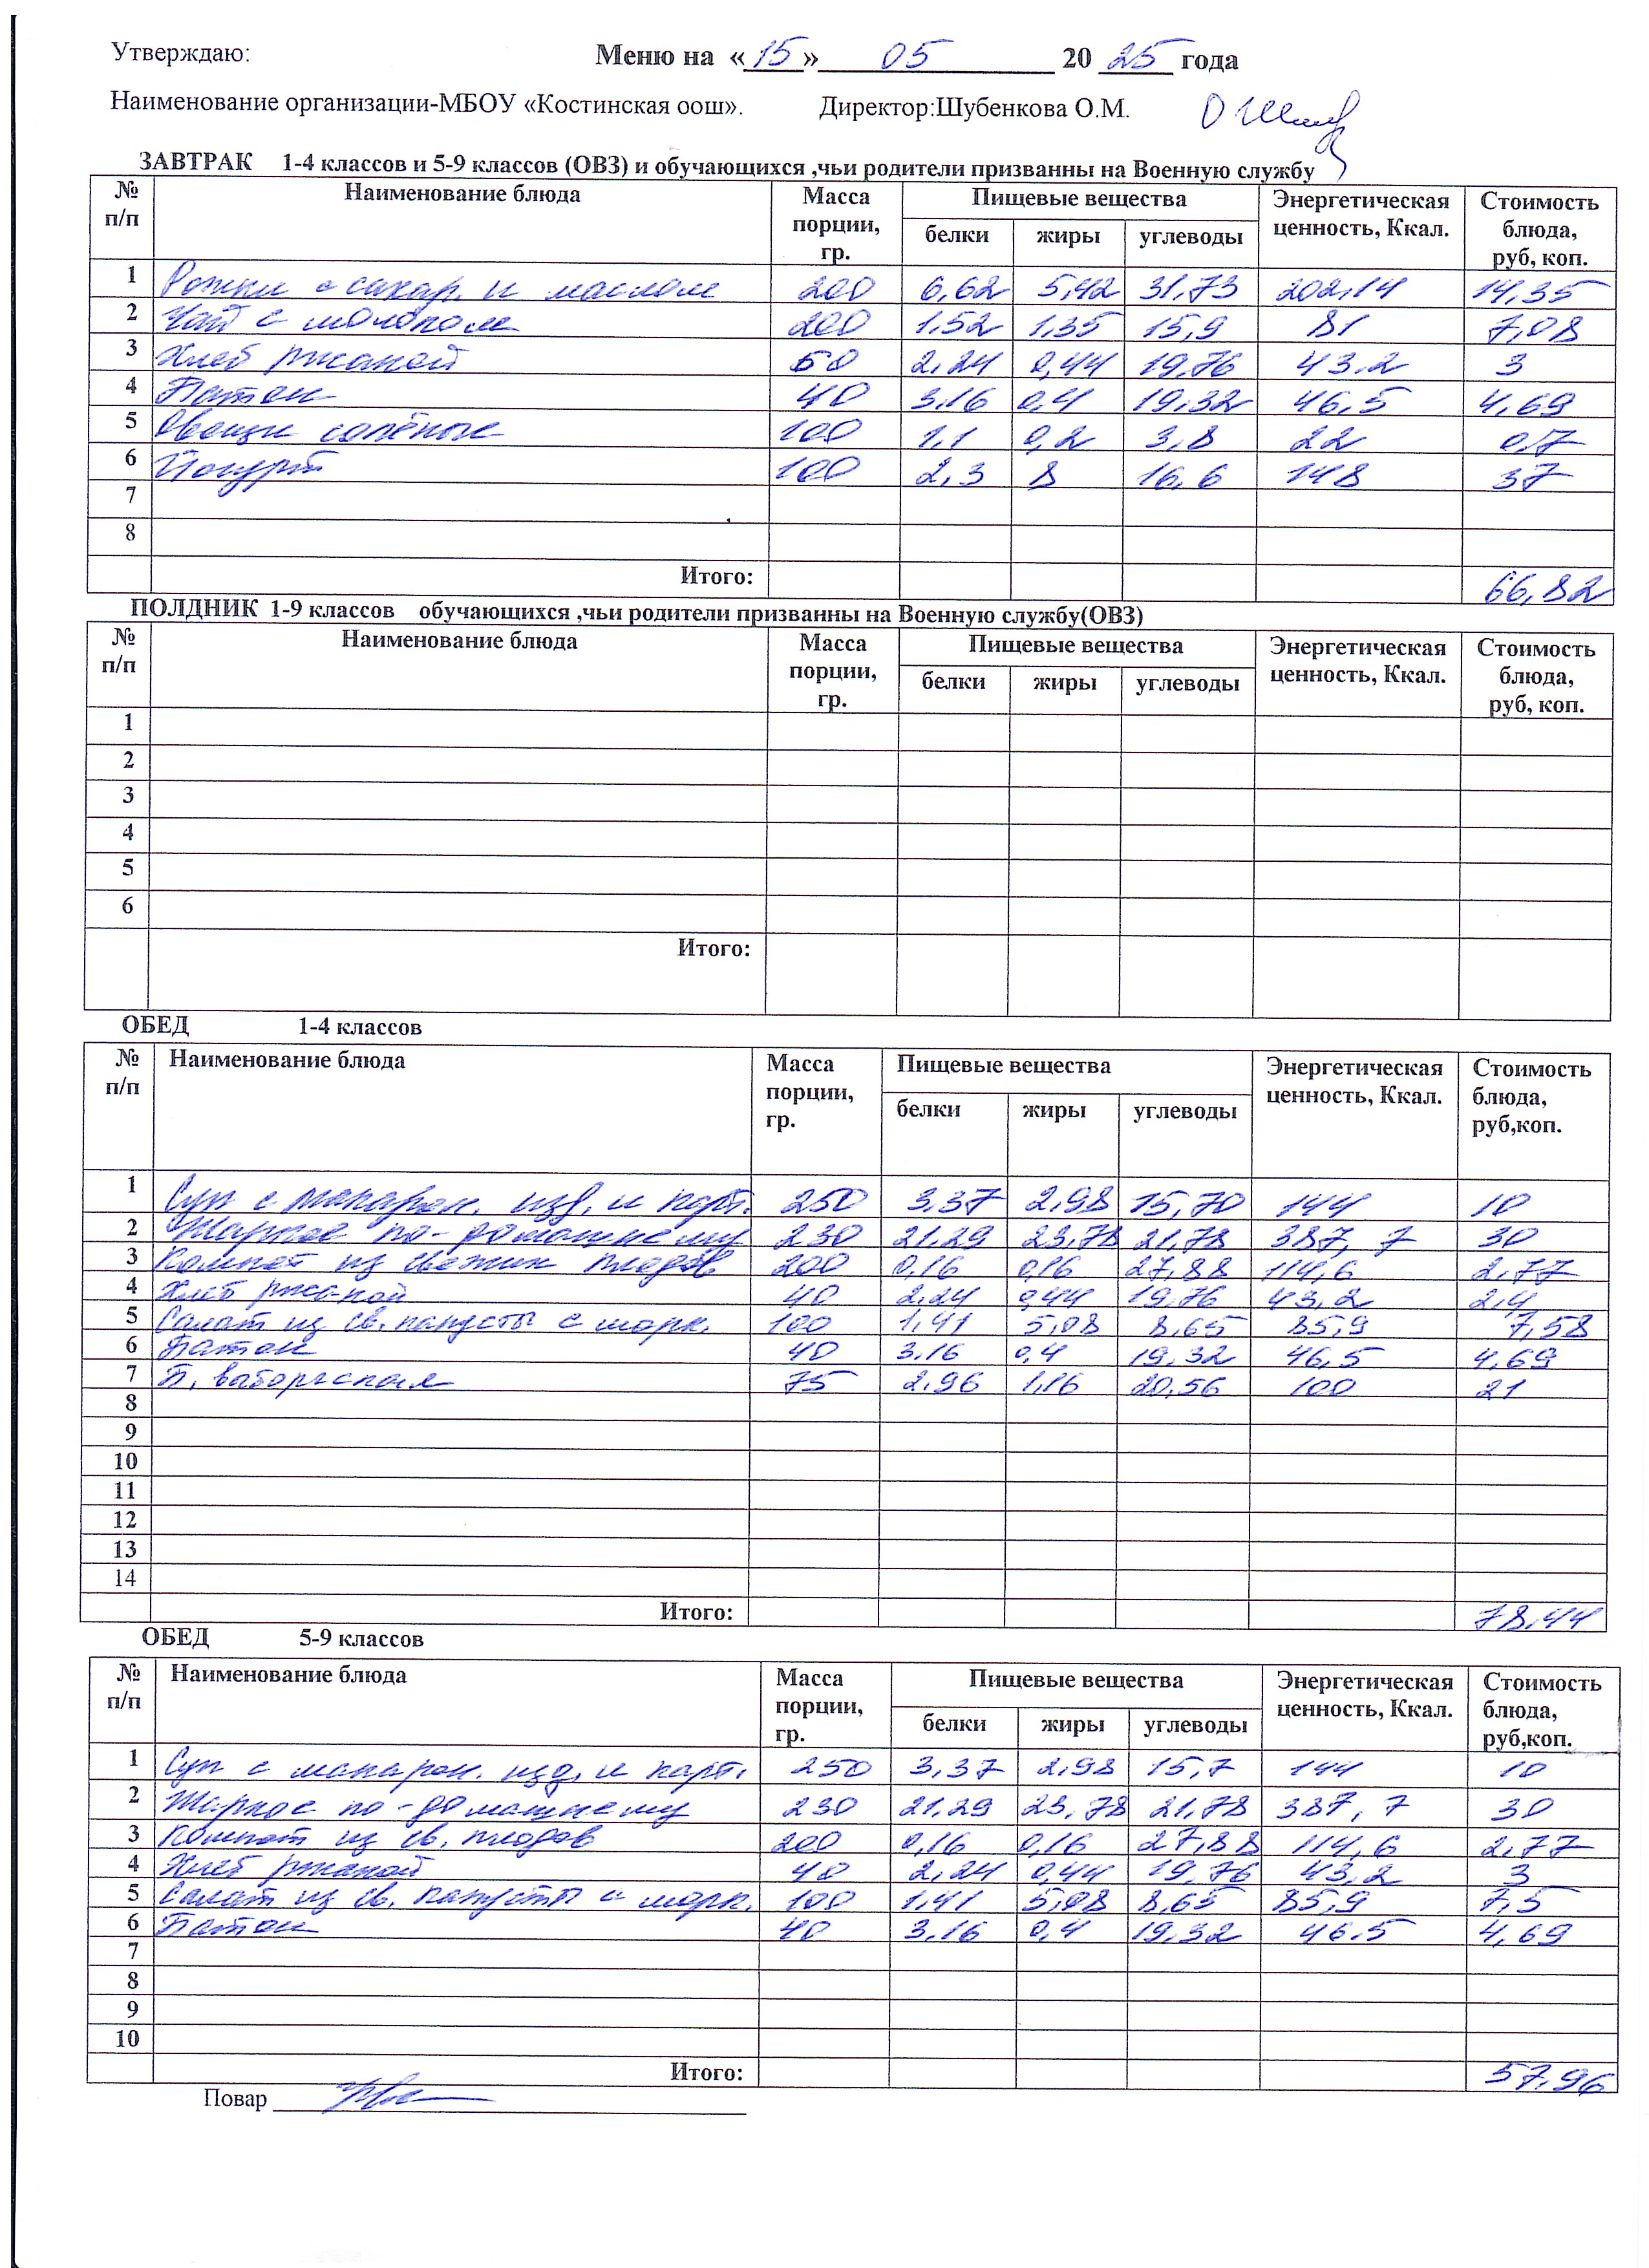 Утверждаю: Меню на «15» 05 20 25 года
Наименование организации-МБОУ «Костинская оош». Директор:Шубенкова О.М.
ЗАВТРАК 1-4 классов и 5-9 классов (ОВЗ) и обучающихся ,чьи родители призванны на Военную службу
№ п/п Наименование блюда Масса порции, гр. Пищевые вещества Энергетическая ценность, Ккал. Стоимость блюда, руб, коп.
белки жиры углеводы
1 Рожки с сахар. и маслом 200 6,62 5,42 31,73 202,14 14,35
2 Чай с молоком 200 1,52 1,35 15,9 81 7,08
3 Хлеб ржаной 50 2,24 0,44 19,76 43.2 3
4 Батон 40 3,16 0,4 19,32 46,5 4,69
5 Овощи солёные 100 1,1 0,2 3,8 22 0,7
6 Йогурт 100 2,3 8 16,6 148 37
7
8
Итого: 66,82
ПОЛДНИК 1-9 классов обучающихся ,чьи родители призванны на Военную службу(ОВЗ)
№ п/п Наименование блюда Масса порции, гр. Пищевые вещества Энергетическая ценность, Ккал. Стоимость блюда, руб, коп.
белки жиры углеводы
1
2
3
4
5
6
Итого:
ОБЕД 1-4 классов
№ п/п Наименование блюда Масса порции, гр. Пищевые вещества Энергетическая ценность, Ккал. Стоимость блюда, руб,коп.
белки жиры углеводы
1 Суп с макарон. изд. и карт. 250 3,37 2,98 15,70 144 10
2 Жаркое по-домашнему 230 21,29 23,78 21,78 387, 7 30
3 Компот из свежих плодов 200 0,16 0,16 27,88 114,6 2,77
4 Хлеб ржаной 40 2,24 0,44 19,76 43,2 2,4
5 Салат из св. капусты с морк. 100 1,41 5,08 8,65 85,9 7,58
6 Батон 40 3,16 0,4 19,32 46,5 4,69
7 П. 75 2,96 1,16 20,56 100 21
8
9
10
11
12
13
14
Итого: 78,44
ОБЕД 5-9 классов
№ п/п Наименование блюда Масса порции, гр. Пищевые вещества Энергетическая ценность, Ккал. Стоимость блюда, руб,коп.
белки жиры углеводы
1 Суп с макарон. изд. и карт. 250 3,37 2,98 15,7 144 10
2 Жаркое по-домашнему 230 21,29 23,78 21,78 387,7 30
3 Компот из св. плодов 200 0,16 0,16 27,88 114,6 2,77
4 Хлеб ржаной 40 2,24 0,44 19,76 43,2 3
5 Салат из св. капусты с морк. 100 1,41 5,08 8,65 85,9 7,5
6 Батон 40 3,16 0,4 19,32 46.5 4,69
7
8
9
10
Итого: 57,96
Повар